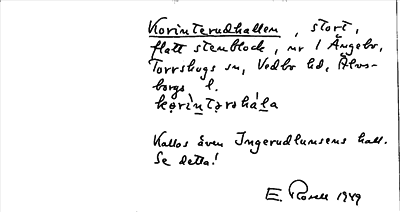 Korinterudhallen, stort,
flatt stenblock, nr 1 Ängebo,
Torrskogs sn, Vedbo hd, Älvs-
borgs l.
kọrìntərəhála
Kallas även Ingerudlunsens hall.
Se detta!
E. Rosell 1949